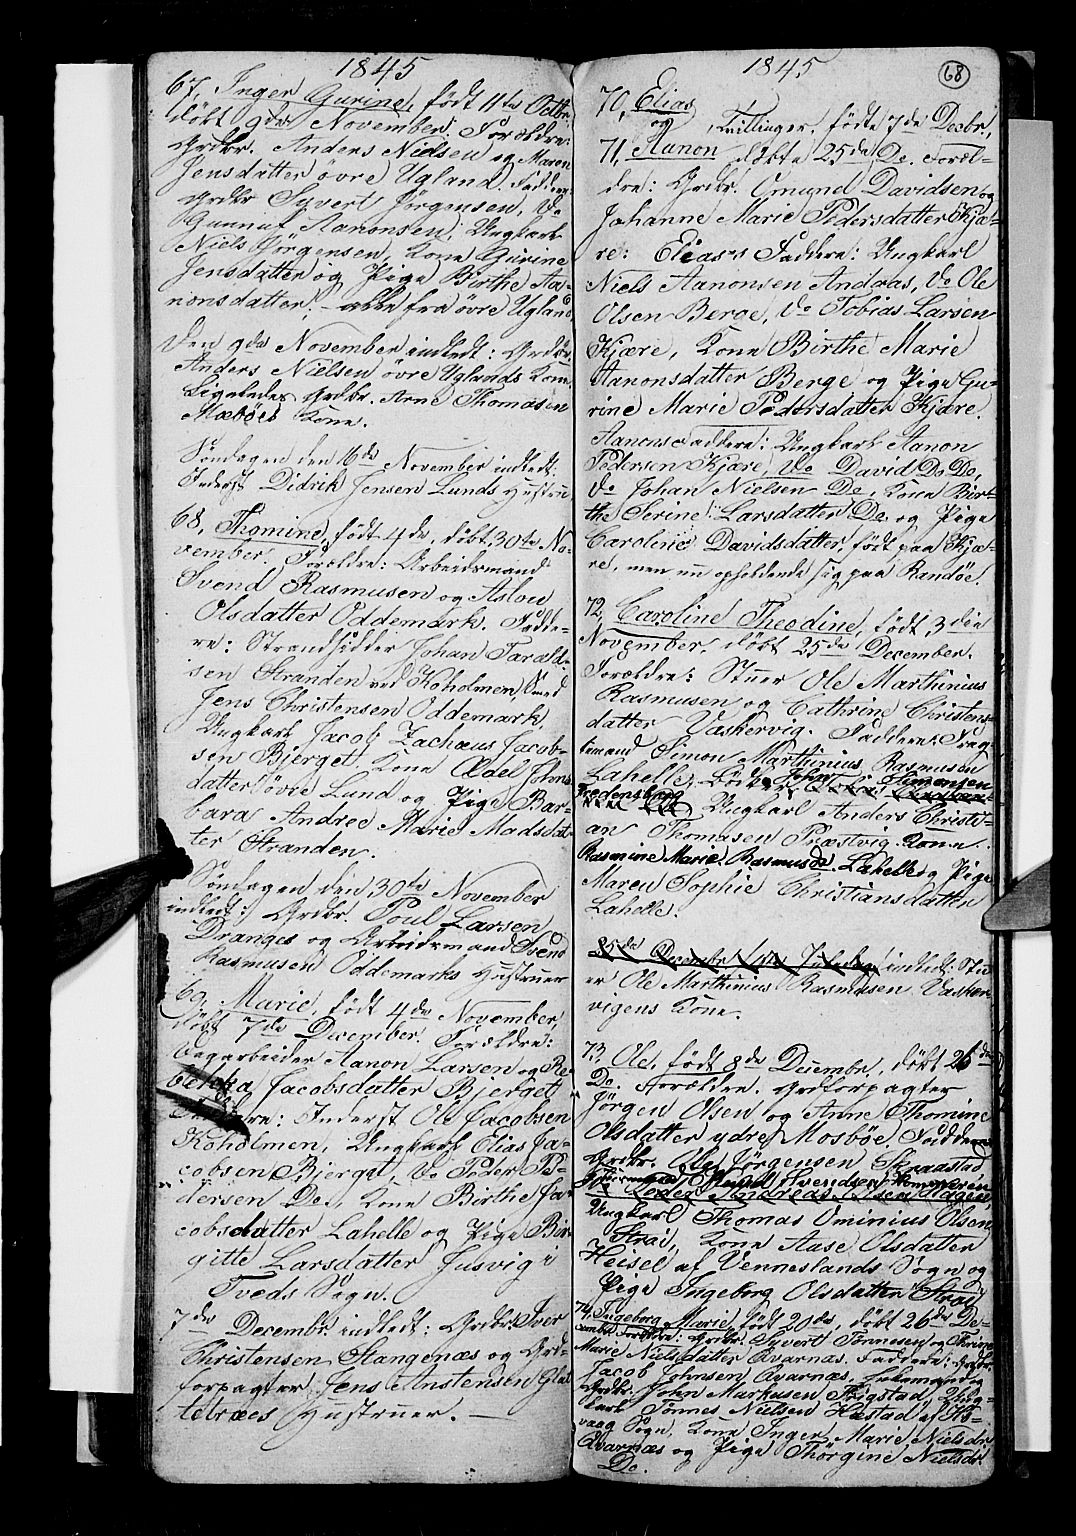 1845
67, Inger Gurine, født 11te Octbr,
døbt 9de November. Forældre:
Grdbr. Anders Nielsen og Maren
Jensdatter øvre Ugland. Faddere:
Grdbr Syvert Jørgensen, Do
Gunnuf Aanonsen, Ungkarl
Niels Jørgensen, Kone Gurine
Jensdatter og Pige Birthe Aa-
nonsdatter, – alle fra øvre Ugland.
Den 9de November indledt: Grdbr.
Anders Nielsen øvre Uglands Kone,
Ligeledes Grdbr. Arne Thomasen
Mæbøes Kone.
Søndagen den 16de November indledt:
Inderst Didrik Jensen Lunds Hustru
68, Thomine, født 4de, døbt 30te No-
vember. Forældre: Arbeidsmand
Svend Rasmusen og Aslou
Olsdatter Oddemark. Fadde-
re: Strandsidder Johan Tarald-
sen Stranden ved Koholmen, Smed
Jens Christensen Oddemark,
Ungkarl Jacob Zachæus Jacob-
sen Bjerget, Kone Ædel Johns-
datter øvre Lund og Pige Bar-
bara Andree Marie Madsdat-
ter Stranden.
Søndagen den 30te November
indledt: Grdbr. Poul Larsen
Dranges og Arbeidsmand Svend
Rasmusen Oddemarks Hustruer
69, Marie, født 4de November,
døbt 7de December. Forældre:
Vegarbeider Aanon Larsen og Re-
bekka Jacobsdatter Bjerget
Faddere: Inderst Ole Jacobsen
Koholmen, Ungkarl Elias Ja-
cobsen Bjerget, Do Peder Pe-
dersen Do, Kone Birthe Ja-
cobsdatter Lahelle og Pige Bir-
gitte Larsdatter Justvig i
Tveds Sogn.
7de Decembr. indledt: Grdbr. Iver
Christensen Stangenæs og Grd-
forpagter Jens Anstensen Glat-
tetræes Hustruer. —
1845
68
70, Elias
og Tvillinger, fødte 7de Decbr,
71, Aanon døbte 25de Do. Foræl-
dre: Grdbr. Omund Davidsen og
Johanne Marie Pedersdatter Kjæ-
re: Elias's Faddere: Ungkarl
Niels Aanonsen Andaas, Do Ole
Olsen Berge, Do Tobias Larsen
Kjære, Kone Birthe Marie
Aanonsdatter Berge og Pige Gu-
rine Marie Pedersdatter Kjære.
Aanons Faddere: Ungkarl Aanon
Pedersen Kjære, Do David Do Do,
Do Johan Nielsen Do, Kone Bir-
the Serine Larsdatter Do og Pige
Caroline Davidsdatter, født paa Kjæ-
re, men nu opholdende sig paa Randøe.
72, Caroline Theodine, født 3die
November, døbt 25de December.
Forældre: Stuer Ole Marthinius
Rasmusen og Cathrine Christens-
datter Vaskervig. Faddere: Frag-
temand Simon Marthinius Rasmusen
Lahelle,
Fredensborg Ungkarl Anders Christi-
an Thomasen Præstvig. Kone
Rasmine Marie Rasmusdr Lahelle og Pige
Maren Sophie Christiansdatter
Lahelle.
25de December 1ste Juledag indledt: Stu-
er Ole Marthinius Rasmusen Vasker-
vigens Kone.
73, Ole, født 8de Decembr, døbt 26de
Do. Forældre: Grdforpagter
Jørgen Olsen og Anne Thomine
Olsdatter ydre Mosbøe. Faddere:
Grdbr. Ole Jørgensen Skraastad
Ungkarl Thomas Ominius Olsen
Strai, Kone Aase Olsdatter
Heisel af Venneslands Sogn og
Pige Ingeborg Olsdatter Strai
74, Ingeborg Marie, født 20de, døbt 26de De-
cember. Forældre: Grdbr. Syvert Tønnesen og Thrine
Marie Nielsdatter Qvarnæs. Faddere: Grdbr.
Jacob Johnsen Qvarnæs,
Grdbr. John Markusen Stigstad, Ung-
karl Tønnes Nielsen Hastad af Hø-
vaag Sogn, Kone Inger Marie Nielsdr
Qvarnæs og Pige Thørgine Nielsdr.
Do.